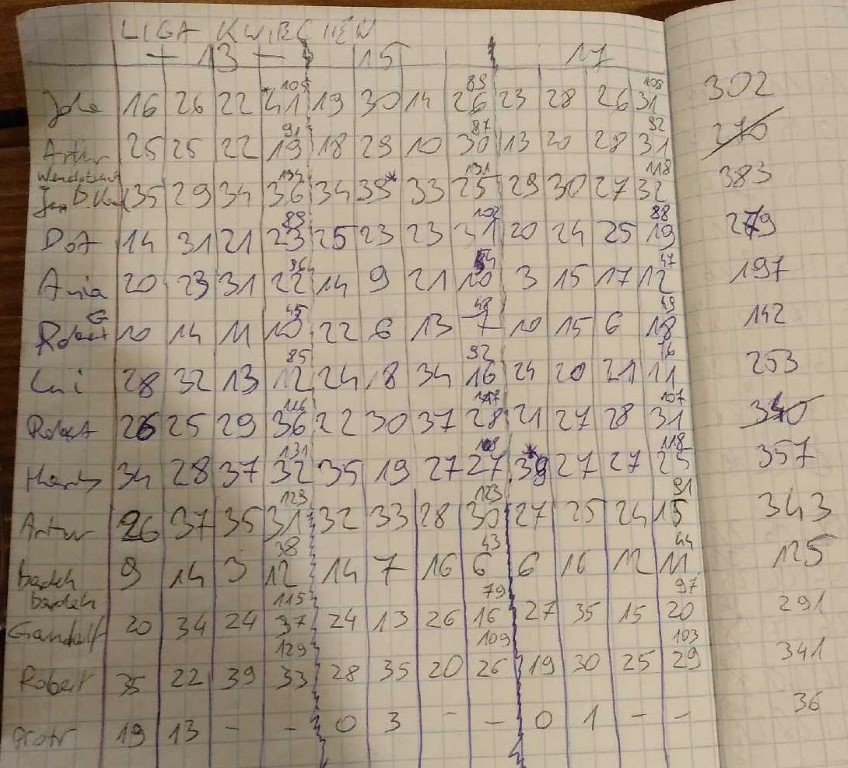 LIGA KWIECIEŃ
13 15 17
Jola 16 26 22 41 105 19 30 14 26 89 23 28 26 31 108 302
Artur 25 25 22 19 91 18 29 10 30 87 13 20 28 31 92 270
35 29 34 36 134 34 39* 33 25 131 29 30 27 32 118 383
DOT 14 31 21 23 89 25 23 23 31 102 20 24 25 19 88 279
Ania 20 23 31 22 96 14 9 21 10 54 3 15 17 12 47 197
Robert G 10 14 11 10 45 22 6 13 7 48 10 15 6 18 49 142
28 32 13 12 85 24 18 34 16 92 24 20 21 11 76 253
Robert 26 25 29 36 116 22 30 37 28 117 21 27 28 31 107 340
34 28 37 32 131 35 19 27 27 108 39* 27 27 25 118 357
Artur 26 37 35 31 123 32 33 28 30 123 27 25 24 15 91 343
9 14 3 12 38 14 7 16 6 43 6 16 12 11 44 125
Gandalf 20 34 24 37 115 24 13 26 16 79 27 35 15 20 97 291
Robert 35 22 39 33 129 28 35 20 26 109 19 30 25 29 103 341
19 13 - - 0 3 - - 0 1 - - 36